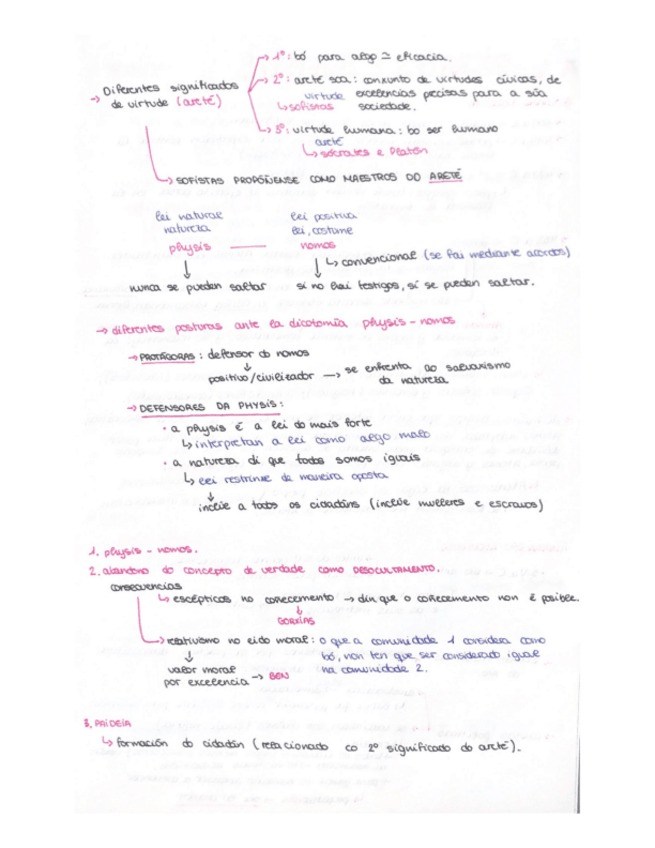 → Diferentes significados de virtude (areté)
→ 1º: bó para algo ≅ eficacia.
→ 2º: areté soa: conxunto de virtudes cívicas, de
virtude excelencias precisas para a súa
↳ sofistas sociedade.
↳ 3º: virtude humana: bo ser humano
areté
↳ sócrates e Platón
→ SOFISTAS PROPÓÑENSE COMO MAESTROS DO ARETÉ
lei natural lei positiva
natureza lei, costume
physis — nomos
↳ convencional (se fai mediante acordos)
nunca se pueden saltar si no hai testigos, sí se pueden saltar.
→ diferentes posturas ante la dicotomía physis - nomos
→ PROTÁGORAS: defensor do nomos
positivo/civilizador → se enfrenta ao salvaxismo
da natureza
→ DEFENSORES DA PHYSIS:
· a physis é a lei do mais forte
↳ interpretan a lei como algo malo
· a natureza di que todos somos iguais
↳ lei restrinxe de maneira oposta
inclúe a todos os cidadáns (inclúe mulleres e escravos)
1. physis - nomos.
2. abandono do concepto de verdade como DESOCULTAMENTO.
consecuencias
↳ escépticos no coñecemento → din que o coñecemento non é posible.
GORXIAS
→ relativismo no eido moral: o que a comunidade 1 considera como
bó, non ten que ser considerado igual
valor moral na comunidade 2.
por excelencia → BEN
3. PAIDEIA
↳ formación do cidadán (relacionado co 2º significado do areté).